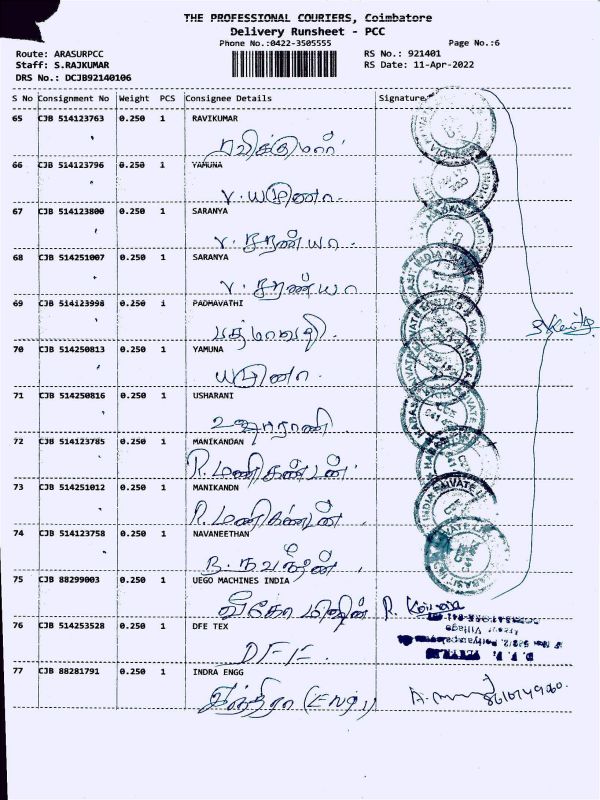 THE PROFESSIONAL COURIERS, Coimbatore
Delivery Runsheet - PCC
Phone No.:0422-3505555 Page No.:6
Route: ARASURPCC RS No.: 921401
Staff: S.RAJKUMAR RS Date: 11-Apr-2022
DRS No.: DCJB92140106
S No Consignment No Weight PCS Consignee Details Signature
65 CJB 514123763 0.250 1 RAVIKUMAR
ரவிக்குமார்
66 CJB 514123796 0.250 1 YAMUNA
v. யமுனா.
67 CJB 514123800 0.250 1 SARANYA
v. சரண்யா.
68 CJB 514251007 0.250 1 SARANYA
v. சரண்யா
69 CJB 514123998 0.250 1 PADMAVATHI
பத்மாவதி.
70 CJB 514250813 0.250 1 YAMUNA
யமுனா.
71 CJB 514250816 0.250 1 USHARANI
உஷாராணி
72 CJB 514123785 0.250 1 MANIKANDAN
R. மணிகண்டன்.
73 CJB 514251012 0.250 1 MANIKANDN
R. மணிகண்டன்.
74 CJB 514123758 0.250 1 NAVANEETHAN
B. நவநீதன்.
75 CJB 88299003 0.250 1 UEGO MACHINES INDIA
R.
76 CJB 514253528 0.250 1 DFE TEX
DFE.
77 CJB 88281791 0.250 1 INDRA ENGG
இந்திரா (ENGG)